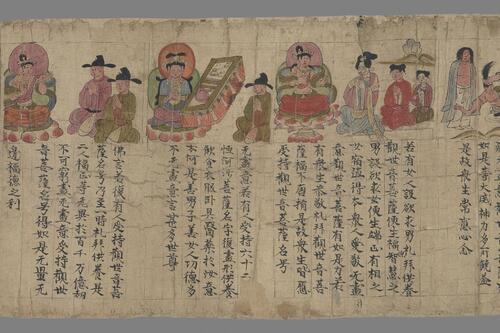 如是等大威神力多所饒益
是故衆生常應心念
若有女人設欲求男礼拜供養
觀世音菩薩便生福智慧之
男設欲求女便生端正有相之
女宿殖德本衆人愛敬无盡
意觀世音菩薩有如是力若
有衆生恭敬礼拜觀世音菩
薩福不唐捐是故衆生皆應
受持觀世音菩薩名号
无盡意若有人受持六十二
恒河沙菩薩名字復盡形供養
飲食衣服卧具醫藥於汝意
云何是善男子善女人功德多
不无盡意言甚多世尊
佛言若復有人受持觀世音菩
薩名号乃至一時礼拜供養是
二人福正等无異於百千万億劫
不可窮盡无盡意受持觀世
音菩薩名号得如是无量无
邊福德之利